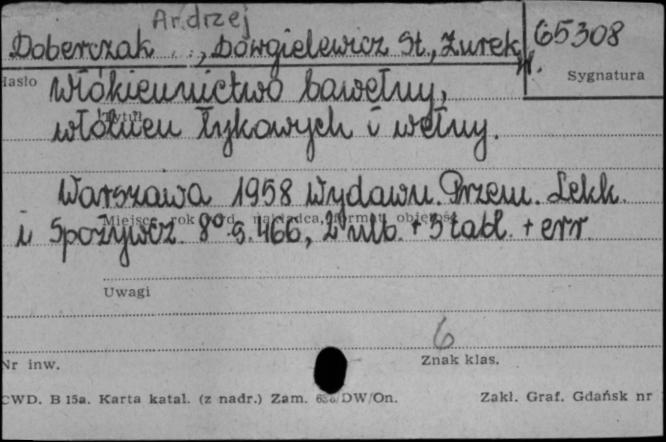 Andrzej
Doberczak . . , Dowgielewicz St., Żurek W.
65308
Hasło
Sygnatura
Włókiennictwo bawełny,
Tytuł
włókien łykowych i wełny.
Warszawa 1958 Wydawn. Przem. Lekk.
Miejsce, rok wyd., nakładca, format, objętość
i Spożywcz. 8° s. 466, 2 nlb. + 3 tabl. + err.
Uwagi
6
Nr inw.
Znak klas.
CWD. B 15a. Karta katal. (z nadr.) Zam. /DW/On.
Zakł. Graf. Gdańsk nr